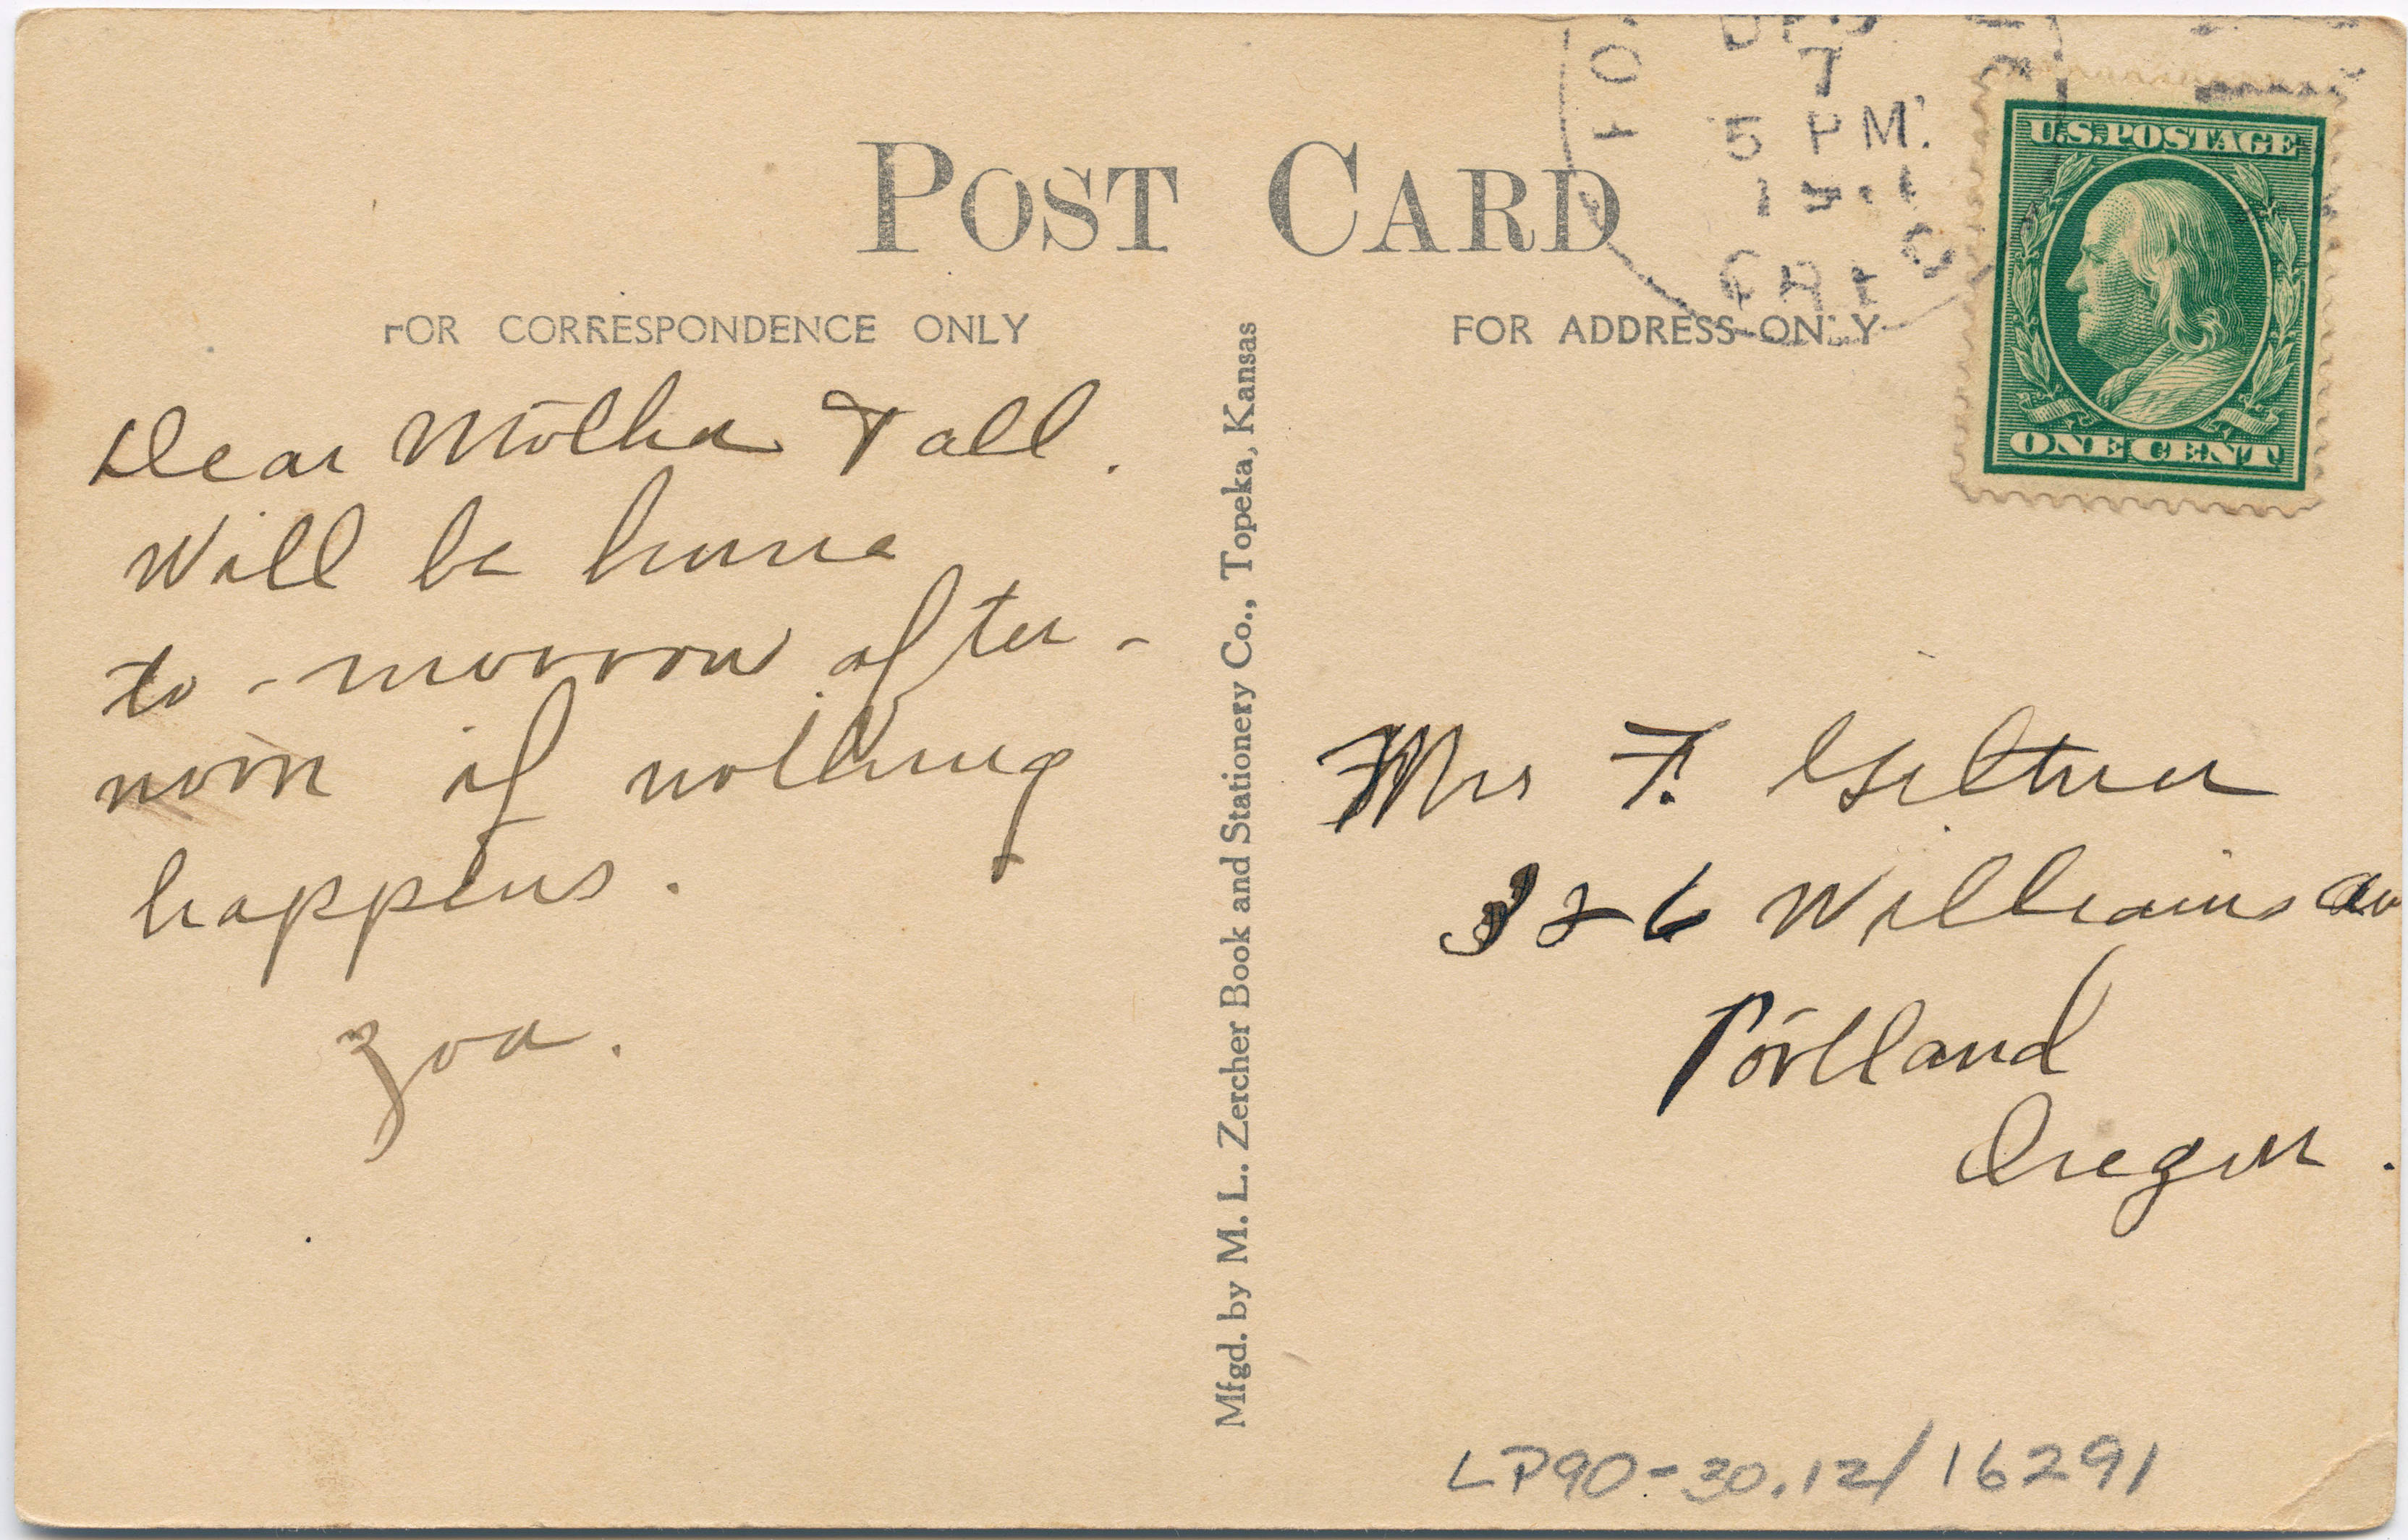 POST CARD
FOR CORRESPONDENCE ONLY
Dear Mother & all.
Will be home
to-morrow after-
noon if nothing
happens.
Zoa.
Mfgd. by M. L. Zercher Book and Stationery Co., Topeka, Kansas
7
5 PM.
FOR ADDRESS ONLY
U.S. POSTAGE
ONE CENT
Mrs F. Giltner
326 Williams av
Portland
Oregon.
LP90-30.12/16291